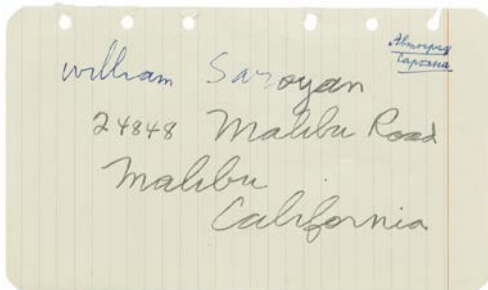 Автограф
Сарояна
William Saroyan
24848 Malibu Road
Malibu
California